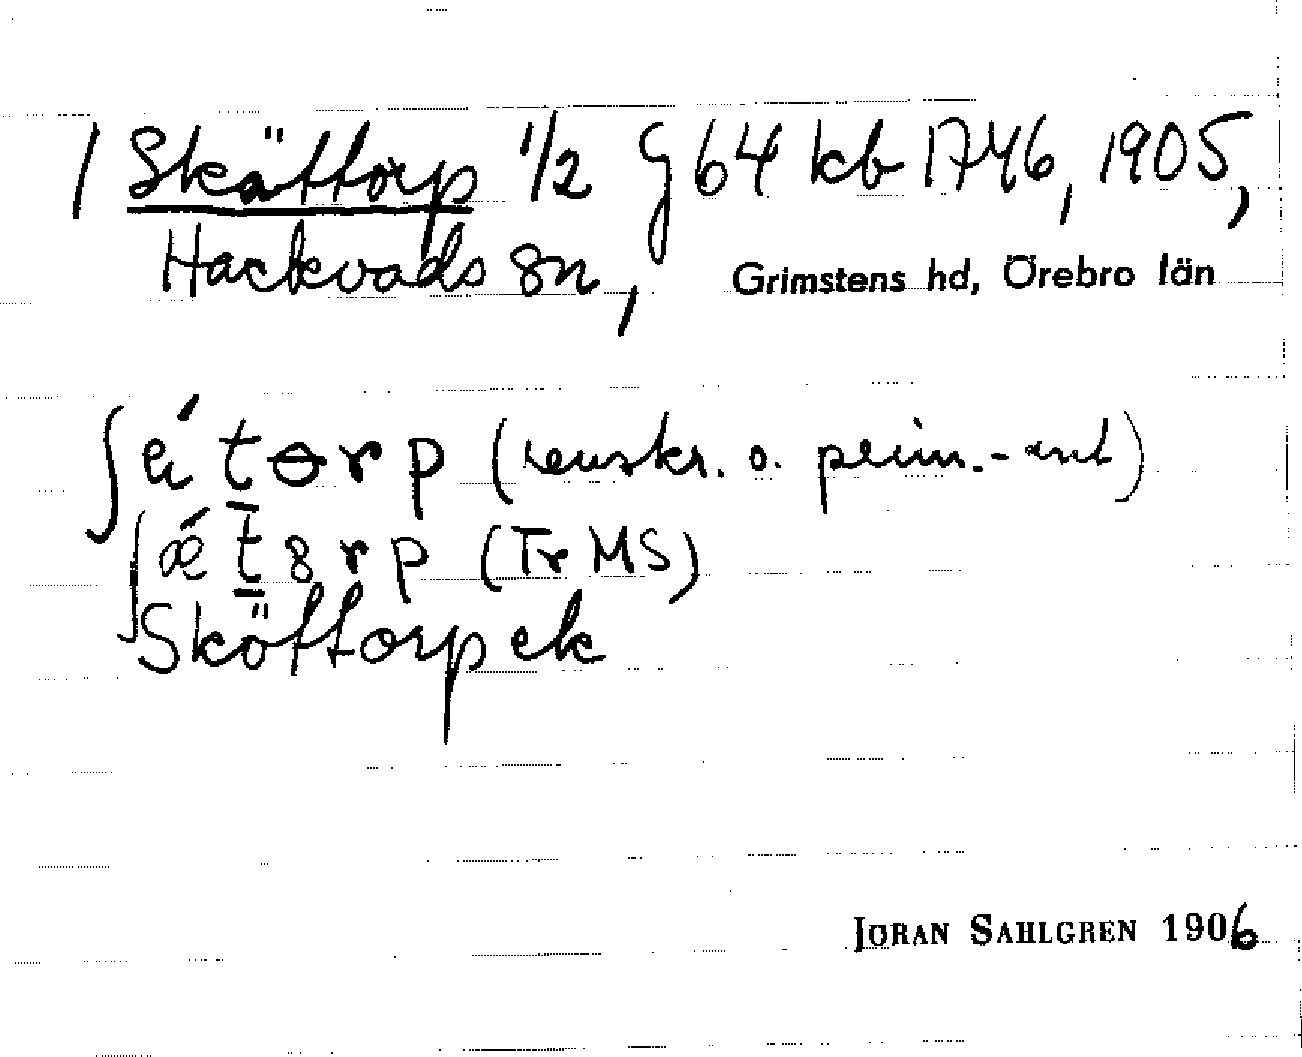 / Skättorp 1/2 g 64 kb 1746, 1905,
Hackvads sn, Grimstens hd, Örebro län
torp (renskr. o. prim.-ant)
ʃǽt8rp (Tr MS)
Sköttorp ek
JÖRAN SAHLGREN 1906